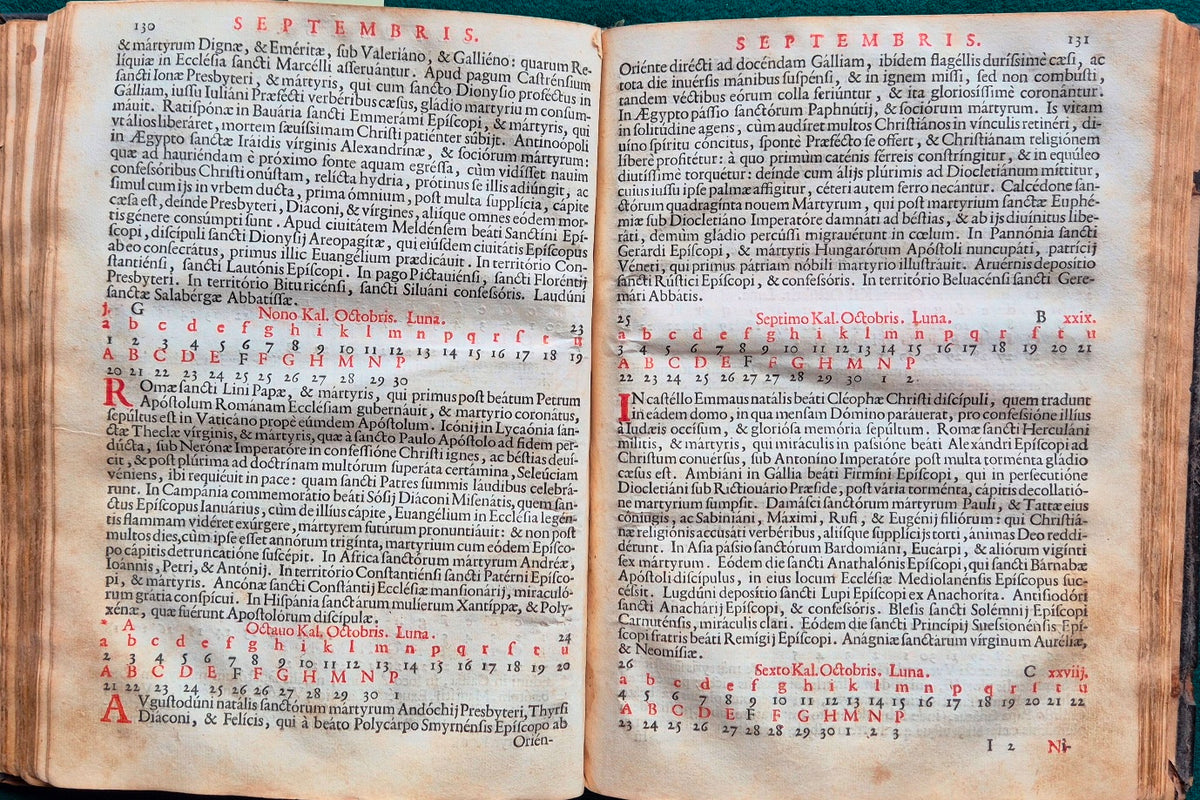 130
SEPTEMBRIS.
& mártyrum Dignæ, & Eméritæ, ſub Valeriáno, & Galliéno: quarum Re-
líquiæ in Eccléſia ſancti Marcélli aſſeruántur. Apud pagum Caſtrénſium
ſancti Ionæ Presbyteri, & mártyris, qui cum ſancto Dionyſio proféctus in
Gálliam, iuſſu Iuliáni Præfécti verbéribus cæſus, gládio martyrium conſum-
máuit. Ratiſpónæ in Bauária ſancti Emmerámi Epíſcopi, & mártyris, qui
vt álios liberáret, mortem ſæuíſſimam Chriſti patiénter súbijt. Antinoópoli
in Ægypto ſanctæ Iráidis vírginis Alexandrínæ, & ſociórum mártyrum:
quæ ad hauriéndam è próximo fonte aquam egréſſa, cùm vidíſſet nauim
confeſſóribus Chriſti onúſtam, relícta hydria, prótinus ſe illis adiúngit, ac
ſimul cum ijs in vrbem ducta, prima ómnium, poſt multa ſupplícia, cápite
cæſa eſt, deínde Presbyteri, Diáconi, & vírgines, aliíque omnes eódem mor-
tis génere conſúmpti ſunt. Apud ciuitátem Meldénſem beáti Sanctíni Epí-
ſcopi, diſcípuli ſancti Dionyſij Areopagítæ, qui eiúſdem ciuitátis Epíſcopus
ab eo conſecrátus, primus illic Euangélium prædicáuit. In território Con-
ſtantiénſi, ſancti Lautónis Epíſcopi. In pago Pictauiénſi, ſancti Floréntij
Presbyteri. In território Bituricénſi, ſancti Siluáni confeſſóris. Laudúni
ſanctæ Salabérgæ Abbatíſſæ.
j. G Nono Kal. Octobris. Luna. 23
a b c d e f g h i k l m n p q r ſ t u
1 2 3 4 5 6 7 8 9 10 11 12 13 14 15 16 17 18 19
A B C D E F F G H M N P
20 21 22 23 24 25 25 26 27 28 29 30
ROmæ ſancti Lini Papæ, & mártyris, qui primus poſt beátum Petrum
Apóſtolum Románam Eccléſiam gubernáuit, & martyrio coronátus,
ſepúltus eſt in Vaticáno propè eúmdem Apóſtolum. Icónij in Lycaónia ſan-
ctæ Theclæ vírginis, & mártyris, quæ à ſancto Paulo Apóſtolo ad fidem per-
dúcta, ſub Neróne Imperatóre in confeſſióne Chriſti ignes, ac béſtias deuí-
cit, & poſt plúrima ad doctrínam multórum ſuperáta certámina, Seleúciam
véniens, ibi requiéuit in pace: quam ſancti Patres ſummis láudibus celebrá-
runt. In Campánia commemorátio beáti Sóſij Diáconi Miſenátis, quem ſan-
ctus Epíſcopus Ianuárius, cùm de illíus cápite, Euangélium in Eccléſia legén-
tis flammam vidéret exúrgere, mártyrem futúrum pronuntiáuit: & non poſt
multos dies, cùm ipſe eſſet annórum trigínta, martyrium cum eódem Epíſco-
po cápitis detruncatióne ſuſcépit. In Africa ſanctórum mártyrum Andréæ,
Ioánnis, Petri, & Antónij. In território Conſtantiénſi ſancti Patérni Epíſco-
pi, & mártyris. Ancónæ ſancti Conſtántij Eccléſiæ manſionárij, miraculó-
rum grátia conſpícui. In Hiſpánia ſanctárum mulíerum Xantíppæ, & Poly-
xénæ, quæ fuérunt Apoſtolórum diſcípulæ.
* A Octauo Kal. Octobris. Luna. 24
a b c d e f g h i k l m n p q r ſ t u
2 3 4 5 6 7 8 9 10 11 12 13 14 15 16 17 18 19 20
A B C D E F F G H M N P
21 22 23 24 25 26 26 27 28 29 30 1
AVguſtodúni natális ſanctórum mártyrum Andóchij Presbyteri, Thyrſi
Diáconi, & Felícis, qui à beáto Polycárpo Smyrnénſis Epíſcopo ab
Orién-
SEPTEMBRIS.
131
Oriénte dirécti ad docéndam Gálliam, ibídem flagéllis duríſſimè cæſi, ac
tota die inuérſis mánibus ſuſpénſi, & in ignem miſſi, ſed non combúſti,
tandem véctibus eórum colla feriúntur, & ita glorioſíſſimè coronántur.
In Ægypto páſſio ſanctórum Paphnútij, & ſociórum mártyrum. Is vitam
in ſolitúdine agens, cùm audíret multos Chriſtiános in vínculis retinéri, di-
uíno ſpíritu cóncitus, ſpontè Præfécto ſe offert, & Chriſtiánam religiónem
líberè profitétur: à quo primùm caténis férreis conſtríngitur, & in equúleo
diutíſſimè torquétur: deínde cum álijs plúrimis ad Diocletiánum míttitur,
cuius iuſſu ipſe palmæ affígitur, céteri autem ferro necántur. Calcédone ſan-
ctórum quadragínta nouem Mártyrum, qui poſt martyrium ſanctæ Euphé-
miæ ſub Diocletiáno Imperatóre damnáti ad béſtias, & ab ijs diuínitus libe-
ráti, demùm gládio percúſſi migrauérunt in cœlum. In Pannónia ſancti
Gerardi Epíſcopi, & mártyris Hungarórum Apóſtoli nuncupáti, patrícij
Véneti, qui primus pátriam nóbili martyrio illuſtráuit. Aruérnis depoſítio
ſancti Rúſtici Epíſcopi, & confeſſóris. In território Beluacénſi ſancti Gere-
mári Abbátis.
25 Septimo Kal. Octobris. Luna. B xxix.
a b c d e f g h i k l m n p q r ſ t u
3 4 5 6 7 8 9 10 11 12 13 14 15 16 17 18 19 20 21
A B C D E F F G H M N P
22 23 24 25 26 27 27 28 29 30 1 2
IN caſtéllo Emmaus natális beáti Cléophæ Chriſti diſcípuli, quem tradunt
in eádem domo, in qua menſam Dómino paráuerat, pro confeſſióne illíus
à Iudæis occíſum, & glorióſa memória ſepúltum. Romæ ſancti Herculáni
mílitis, & mártyris, qui miráculis in paſſióne beáti Alexándri Epíſcopi ad
Chriſtum conuérſus, ſub Antoníno Imperatóre poſt multa torménta gládio
cæſus eſt. Ambiáni in Gállia beáti Firmíni Epíſcopi, qui in perſecutióne
Diocletiáni ſub Rictiouáro Præſide, poſt vária torménta, cápitis decollatió-
ne martyrium ſumpſit. Damáſci ſanctórum mártyrum Pauli, & Tattæ eius
cóniugis, ac Sabiniáni, Máximi, Rufi, & Eugénij filiórum: qui Chriſtiá-
næ religiónis accuſáti verbéribus, aliíſque ſupplícijs torti, ánimas Deo reddi-
dérunt. In Aſia páſſio ſanctórum Bardomiáni, Eucárpi, & aliórum vigínti
ſex mártyrum. Eódem die ſancti Anathalónis Epíſcopi, qui ſancti Bárnabæ
Apóſtoli diſcípulus, in eius locum Eccléſiæ Mediolanénſis Epíſcopus ſuc-
céſſit. Lugdúni depoſítio ſancti Lupi Epíſcopi ex Anachoríta. Antiſiodóri
ſancti Anachárij Epíſcopi, & confeſſóris. Bleſis ſancti Solémnij Epíſcopi
Carnuténſis, miráculis clari. Eódem die ſancti Princípij Sueſſionénſis Epí-
ſcopi fratris beáti Remígij Epíſcopi. Anágniæ ſanctárum vírginum Auréliæ,
& Neomíſiæ.
26 Sexto Kal. Octobris. Luna. C xxviij.
a b c d e f g h i k l m n p q r ſ t u
4 5 6 7 8 9 10 11 12 13 14 15 16 17 18 19 20 21 22
A B C D E F F G H M N P
23 24 25 26 27 28 28 29 30 1 2 3
I 2 Ni-